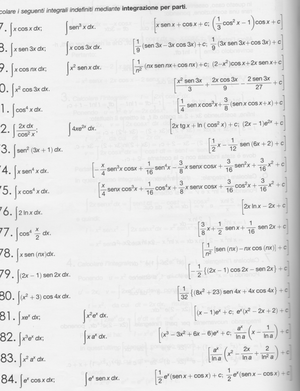 colare i seguenti integrali indefiniti mediante integrazione per parti.
7. ∫x cos x dx; ∫sen³ x dx. [x sen x + cos x + c; (1/3 cos² x − 1) cos x + c]
8. ∫x sen 3x dx; ∫x cos 3x dx. [1/9 (sen 3x − 3x cos 3x) + c; 1/9 (3x sen 3x + cos 3x) + c]
9. ∫x cos nx dx; ∫x² sen x dx. [1/n² (nx sen nx + cos nx) + c; (2 − x²) cos x + 2x sen x + c]
0. ∫x² cos 3x dx. [x² sen 3x/3 + 2x cos 3x/9 − 2 sen 3x/27 + c]
1. ∫cos⁴ x dx. [1/4 sen x cos³ x + 3/8 (sen x cos x + x) + c]
2. ∫2x dx/cos² x; ∫4xe²ˣ dx. [2x tg x + ln (cos² x) + c; (2x − 1)e²ˣ + c]
3. ∫sen² (3x + 1) dx. [1/2 x − 1/12 sen (6x + 2) + c]
4. ∫x sen⁴ x dx. [−x/4 sen³ x cos x + 1/16 sen⁴ x − 3/8 x sen x cos x + 3/16 sen² x + 3/16 x² + c]
5. ∫x cos⁴ x dx.
76. ∫2 ln x dx. [2x ln x − 2x + c]
77. ∫cos⁴ x/2 dx. [3/8 x + 1/2 sen x + 1/16 sen 2x + c]
78. ∫x sen (nx) dx. [1/n² [sen (nx) − nx cos (nx)] + c]
79. ∫(2x − 1) sen 2x dx. [−1/2 [(2x − 1) cos 2x − sen 2x] + c]
80. ∫(x² + 3) cos 4x dx. [1/32 [(8x² + 23) sen 4x + 4x cos 4x] + c]
81. ∫xeˣ dx; ∫x²eˣ dx. [(x − 1)eˣ + c; eˣ(x² − 2x + 2) + c]
82. ∫x³eˣ dx; ∫x aˣ dx. [(x³ − 3x² + 6x − 6)eˣ + c; aˣ/ln a (x − 1/ln a) + c]
83. ∫x² aˣ dx. [aˣ/ln a (x² − 2x/ln a + 2/ln² a) + c]
84. ∫eˣ cos x dx; ∫eˣ sen x dx. [1/2 eˣ(sen x + cos x) + c; 1/2 eˣ(sen x − cos x) + c]